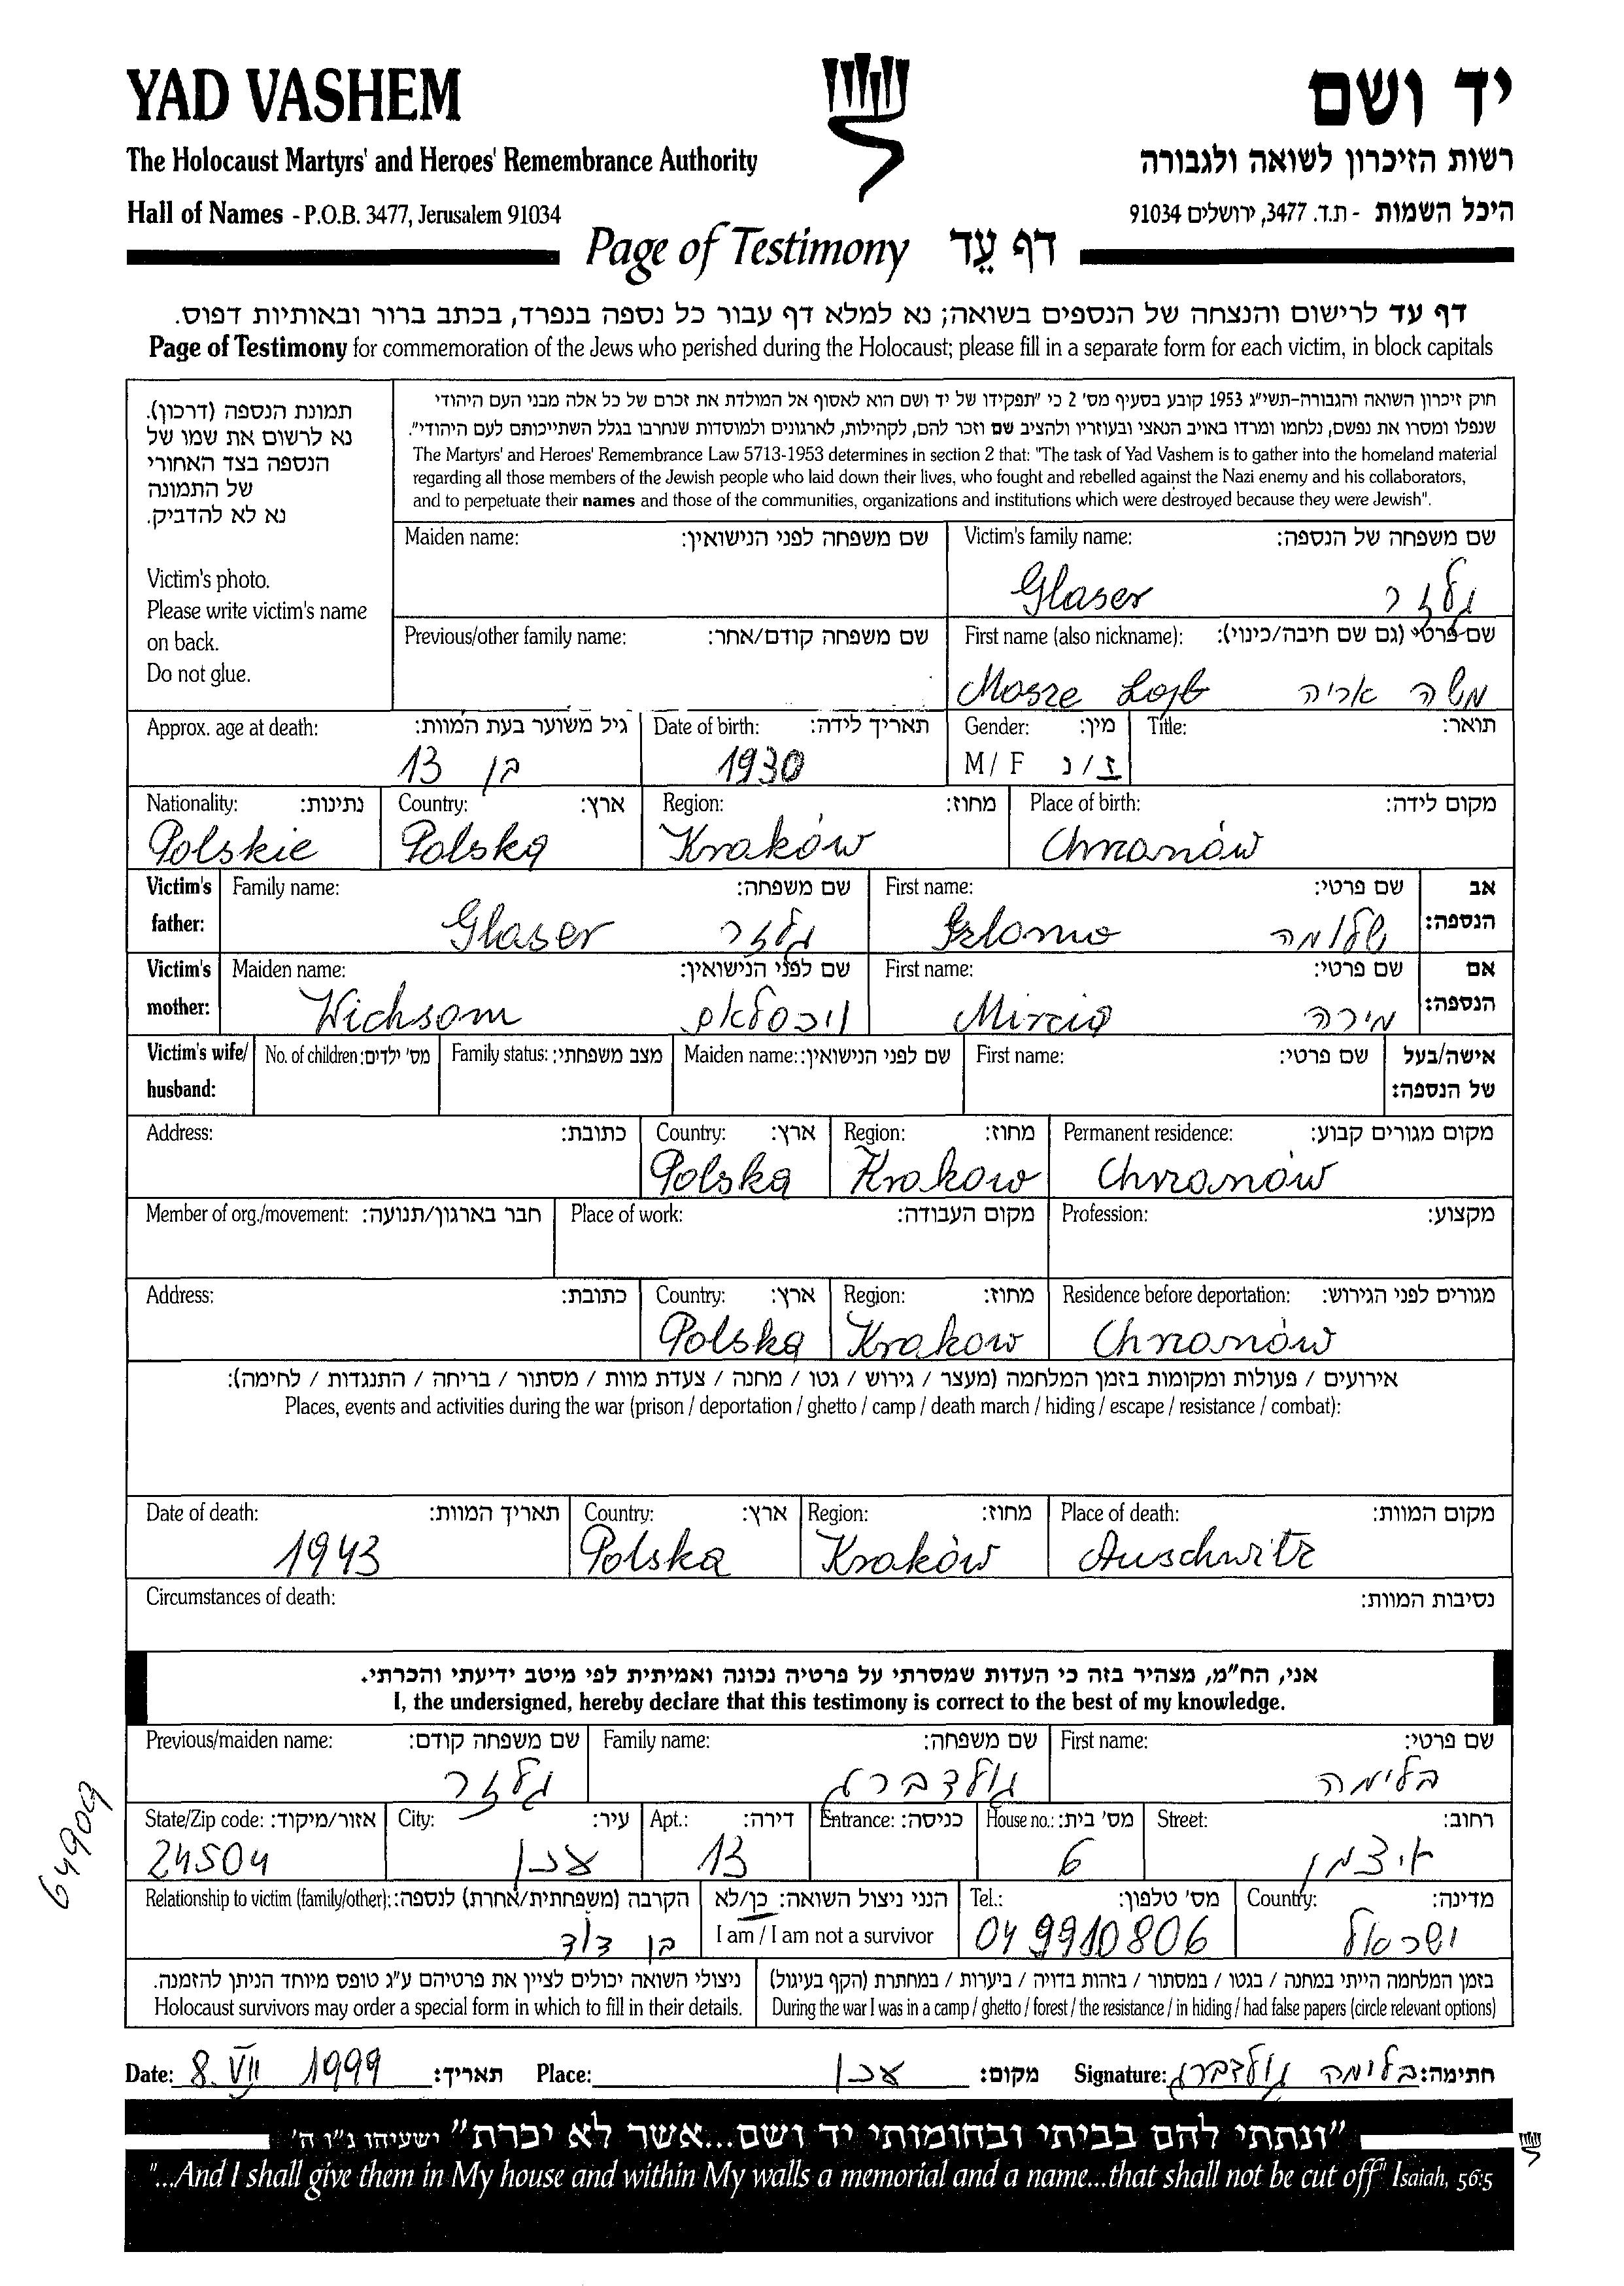 YAD VASHEM
יד ושם
The Holocaust Martyrs' and Heroes' Remembrance Authority
רשות הזיכרון לשואה ולגבורה
Hall of Names - P.O.B. 3477, Jerusalem 91034
היכל השמות - ת.ד. 3477, ירושלים 91034
Page of Testimony דף עֵד
דף עד לרישום והנצחה של הנספים בשואה; נא למלא דף עבור כל נספה בנפרד, בכתב ברור ובאותיות דפוס.
Page of Testimony for commemoration of the Jews who perished during the Holocaust; please fill in a separate form for each victim, in block capitals
תמונת הנספה (דרכון).
נא לרשום את שמו של
הנספה בצד האחורי
של התמונה
נא לא להדביק.
Victim's photo.
Please write victim's name
on back.
Do not glue.
חוק זיכרון השואה והגבורה-תשי"ג 1953 קובע בסעיף מס' 2 כי "תפקידו של יד ושם הוא לאסוף אל המולדת את זכרם של כל אלה מבני העם היהודי
שנפלו ומסרו את נפשם, נלחמו ומרדו באויב הנאצי ובעוזריו ולהציב שם וזכר להם, לקהילות, לארגונים ולמוסדות שנחרבו בגלל השתייכותם לעם היהודי".
The Martyrs' and Heroes' Remembrance Law 5713-1953 determines in section 2 that: "The task of Yad Vashem is to gather into the homeland material
regarding all those members of the Jewish people who laid down their lives, who fought and rebelled against the Nazi enemy and his collaborators,
and to perpetuate their names and those of the communities, organizations and institutions which were destroyed because they were Jewish".
Maiden name: שם משפחה לפני הנישואין:
Victim's family name: שם משפחה של הנספה:
Glaser גלזר
Previous/other family name: שם משפחה קודם/אחר:
First name (also nickname): שם פרטי (גם שם חיבה/כינוי):
Mosze Lejb משה אריה
Approx. age at death: גיל משוער בעת המוות:
בן 13
Date of birth: תאריך לידה:
1930
Gender: מין:
M / F ז / נ
Title: תואר:
Nationality: נתינות:
Polskie
Country: ארץ:
Polska
Region: מחוז:
Kraków
Place of birth: מקום לידה:
Chrzanów
Victim's father: אב הנספה:
Family name: שם משפחה:
Glaser גלזר
First name: שם פרטי:
Szlomo שלומה
Victim's mother: אם הנספה:
Maiden name: שם לפני הנישואין:
First name: שם פרטי:
מירה
Victim's wife/ husband: אישה/בעל של הנספה:
No. of children: מס' ילדים:
Family status: מצב משפחתי:
Maiden name: שם לפני הנישואין:
First name: שם פרטי:
Address: כתובת:
Country: ארץ:
Polska
Region: מחוז:
Krakow
Permanent residence: מקום מגורים קבוע:
Chrzanów
Member of org./movement: חבר בארגון/תנועה:
Place of work: מקום העבודה:
Profession: מקצוע:
Address: כתובת:
Country: ארץ:
Polska
Region: מחוז:
Krakow
Residence before deportation: מגורים לפני הגירוש:
Chrzanów
אירועים / פעולות ומקומות בזמן המלחמה (מעצר / גירוש / גטו / מחנה / צעדת מוות / מסתור / בריחה / התנגדות / לחימה):
Places, events and activities during the war (prison / deportation / ghetto / camp / death march / hiding / escape / resistance / combat):
Date of death: תאריך המוות:
1943
Country: ארץ:
Polska
Region: מחוז:
Kraków
Place of death: מקום המוות:
Auschwitz
Circumstances of death: נסיבות המוות:
אני, הח"מ, מצהיר בזה כי העדות שמסרתי על פרטיה נכונה ואמיתית לפי מיטב ידיעתי והכרתי.
I, the undersigned, hereby declare that this testimony is correct to the best of my knowledge.
Previous/maiden name: שם משפחה קודם:
גלזר
Family name: שם משפחה:
גולדברג
First name: שם פרטי:
בלימה
State/Zip code: אזור/מיקוד:
24504
City: עיר:
עכו
Apt.: דירה:
13
Entrance: כניסה:
House no.: מס' בית:
6
Street: רחוב:
Relationship to victim (family/other): הקרבה (משפחתית/אחרת) לנספה:
בן דוד
הנני ניצול השואה: כן/לא
I am / I am not a survivor
Tel.: מס' טלפון:
04 9910806
Country: מדינה:
ישראל
ניצולי השואה יכולים לציין את פרטיהם ע"ג טופס מיוחד הניתן להזמנה.
Holocaust survivors may order a special form in which to fill in their details.
בזמן המלחמה הייתי במחנה / בגטו / במסתור / בזהות בדויה / ביערות / במחתרת (הקף בעיגול)
During the war I was in a camp / ghetto / forest / the resistance / in hiding / had false papers (circle relevant options)
Date: 8. VII 1999 תאריך: Place: עכו מקום: Signature: בלימה גולדברג חתימה:
"ונתתי להם בביתי ובחומותי יד ושם...אשר לא יכרת" ישעיהו נ"ו ה'
"...And I shall give them in My house and within My walls a memorial and a name...that shall not be cut off" Isaiah, 56:5
64909